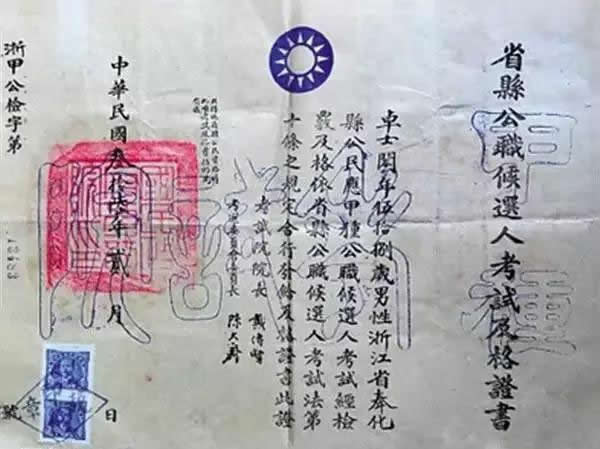 省縣公職候選人考試及格證書
卓士閎年伍拾捌歲男性浙江省奉化
縣公民應甲種公職候選人考試經檢
覈及格依省縣公職候選人考試法第
十條之規定合行發給及格證書此證
考試院院長 戴傳賢
中華民國叁拾柒年貳月 日
浙甲公檢字第 號